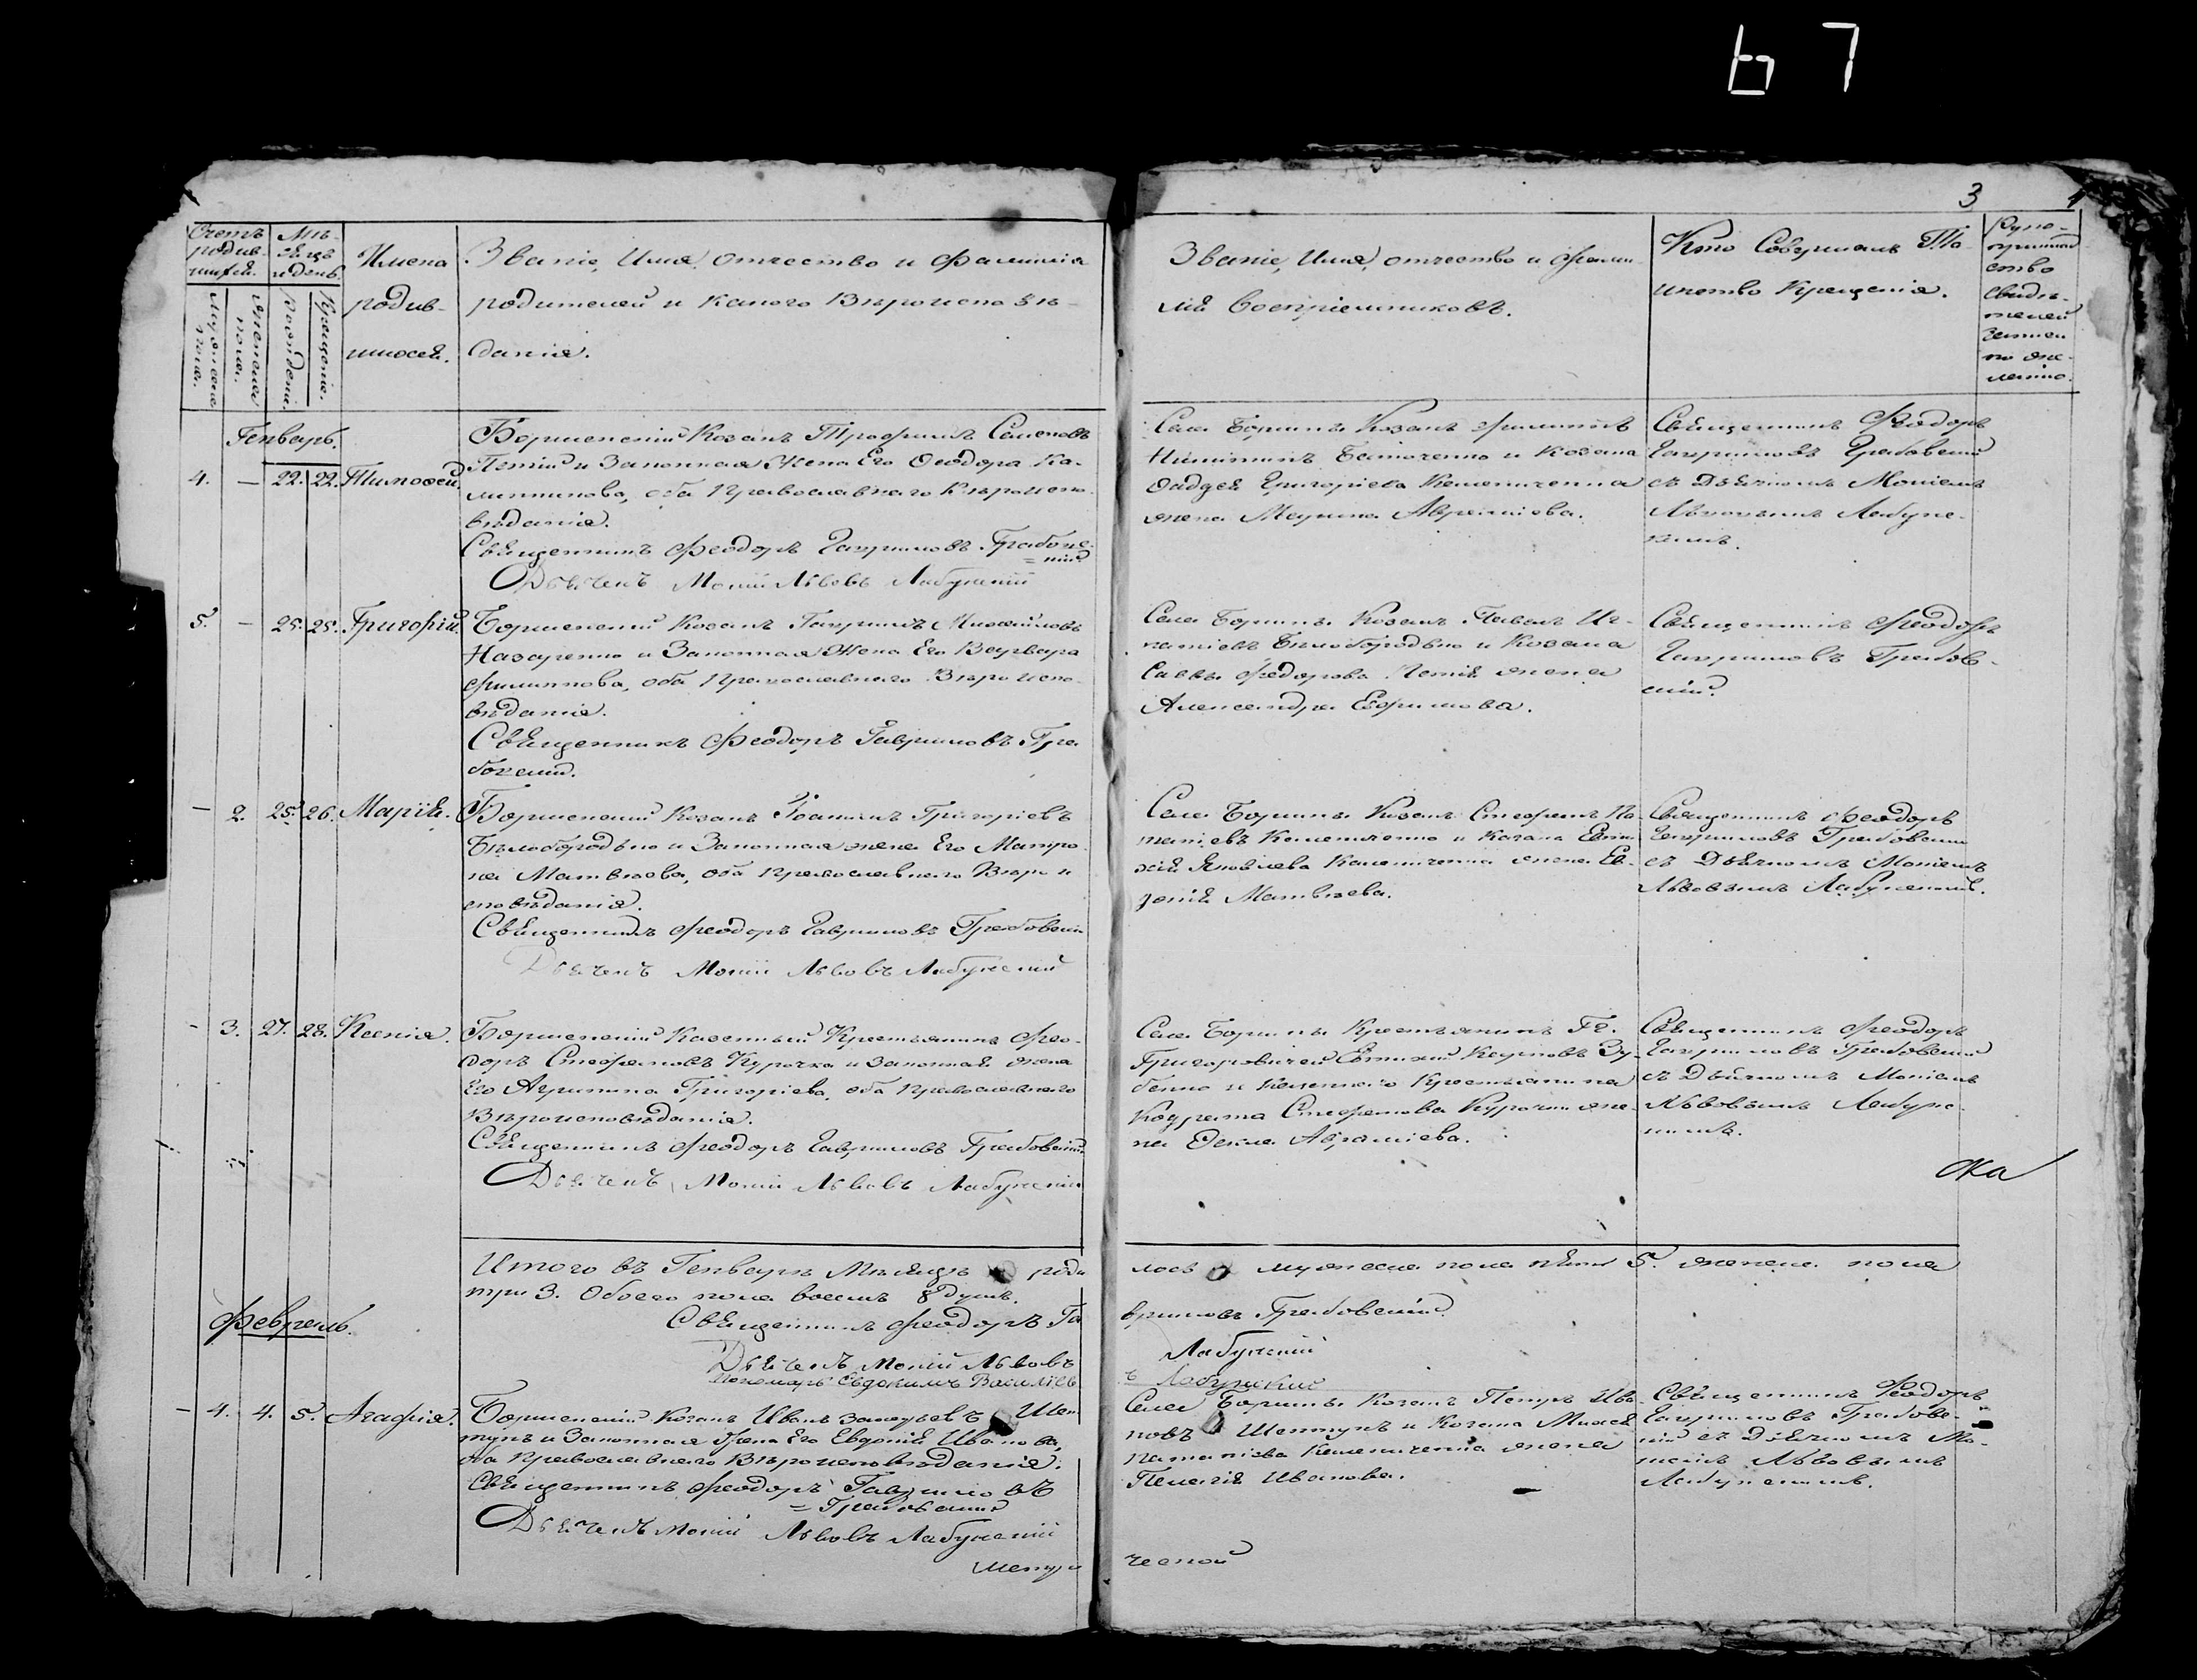 67
3
Счетъ родив-шихся.
Мѣ-сяцъ и день.
Мужеска пола.
Женска пола.
Рожденія.
Крещенія.
Имена
родив-
шихся.
Званіе, Имя, отчество и фамилія
родителей и какого Вѣроисповѣ-
данія.
Званіе, Имя, отчество и фами-
лія Воспріемниковъ.
Кто Совершалъ Та-
инство Крещенія.
Руко-
приклад
ство
Свидѣ-
телей
записи
по же-
ланію.
Генварь.
4. — 22. 22. Тимофей.
Боршенскій Козакъ Трофимъ Семеновъ
и Законная Жена Его Феодора Ка-
линникова, оба Православнаго Вѣроиспо-
вѣданія.
Священникъ Феодоръ Гавриловъ Грабовс-
=кій
Дьячекъ Мокій Львовъ Лабунскій
Села Борщны Козакъ Филиппъ
Никитинъ и Козака
Фадея Григоріева
жена Марина Авраміева.
Священникъ Феодоръ
Гавриловъ Грабовскій
съ Дьячкомъ Мокіемъ
Львовымъ Лабунс-
кимъ.
5. — 25. 25. Григорій.
Боршенскій Козакъ Гавриилъ Михайловъ
Назаренко и Законная Жена Его Варвара
Филиппова, оба Православнаго Вѣроиспо-
вѣданія.
Священникъ Феодоръ Гавриловъ Гра
бовскій.
Села Борщны Козакъ Павелъ Иг-
натіевъ Бѣлобородько и Козака
Саввы Федорова жена
Александра Ефимова.
Священникъ Феодоръ
Гавриловъ Грабов-
скій.
— 2. 25. 26. Марія.
Боршенскій Козакъ Іоаннъ Григоріевъ
Бѣлобородько и Законная жена Его Матро
на Матвѣева, оба Православнаго Вѣрои
сповѣданія.
Священникъ Феодоръ Гавриловъ Грабовскій
Дьячекъ Мокій Львовъ Лабунскій
Села Борщны Козакъ Стефанъ
и Козака Евти-
хія Яковлева жена Ев-
докія Матвѣева.
Священникъ Феодоръ
Гавриловъ Грабовскій
съ Дьячкомъ Мокіемъ
Львовымъ Лабунскимъ.
— 3. 27. 28. Ксенія.
Боршенскій Казенный Крестьянинъ Фео-
доръ Стефановъ Курочка и Законная жена
Его Агрипина Григоріева, оба Православнаго
Вѣроисповѣданія.
Священникъ Феодоръ Гавриловъ Грабовскій
Дьячекъ Мокій Львовъ Лабунскій
Села Борщны Крестьянинъ Гг.
Григоровичей Евтихій Карповъ Зу-
бенко и Казеннаго Крестьянина
Кодрата Стефанова Курочки же-
на Фекла Авраміева.
Священникъ Феодоръ
Гавриловъ Грабовскій
съ Дьячкомъ Мокіемъ
Львовымъ Лабунс-
кимъ.
ска
Итого въ Генварѣ Мѣсяцѣ роди
лось мужеска пола пять 5. женска пола
три 3. Обоего пола восемь 8 душъ.
Священникъ Феодоръ Га
вриловъ Грабовскій
Дьячекъ Мокій Львовъ
Лабунскій
Пономарь Евдокимъ Василіев
ъ Лабунскій
Февраль.
— 4. 4. 5. Агафія.
Боршенскій Козакъ Иванъ Шеп
тунъ и Законная Жена Его Евдокія Иванова,
оба Православнаго Вѣроисповѣданія.
Священникъ Феодоръ Гавриловъ
=Грабовскій
Дьячекъ Мокій Львовъ Лабунскій
Села Борщны Козакъ Петръ Ива
новъ Шептунъ и Козака
жена
Пелагія Иванова.
Священникъ Феодоръ
Гавриловъ Грабовс-
кій съ Дьячкомъ Мо-
кіемъ Львовымъ
Лабунскимъ.
метри
ческой